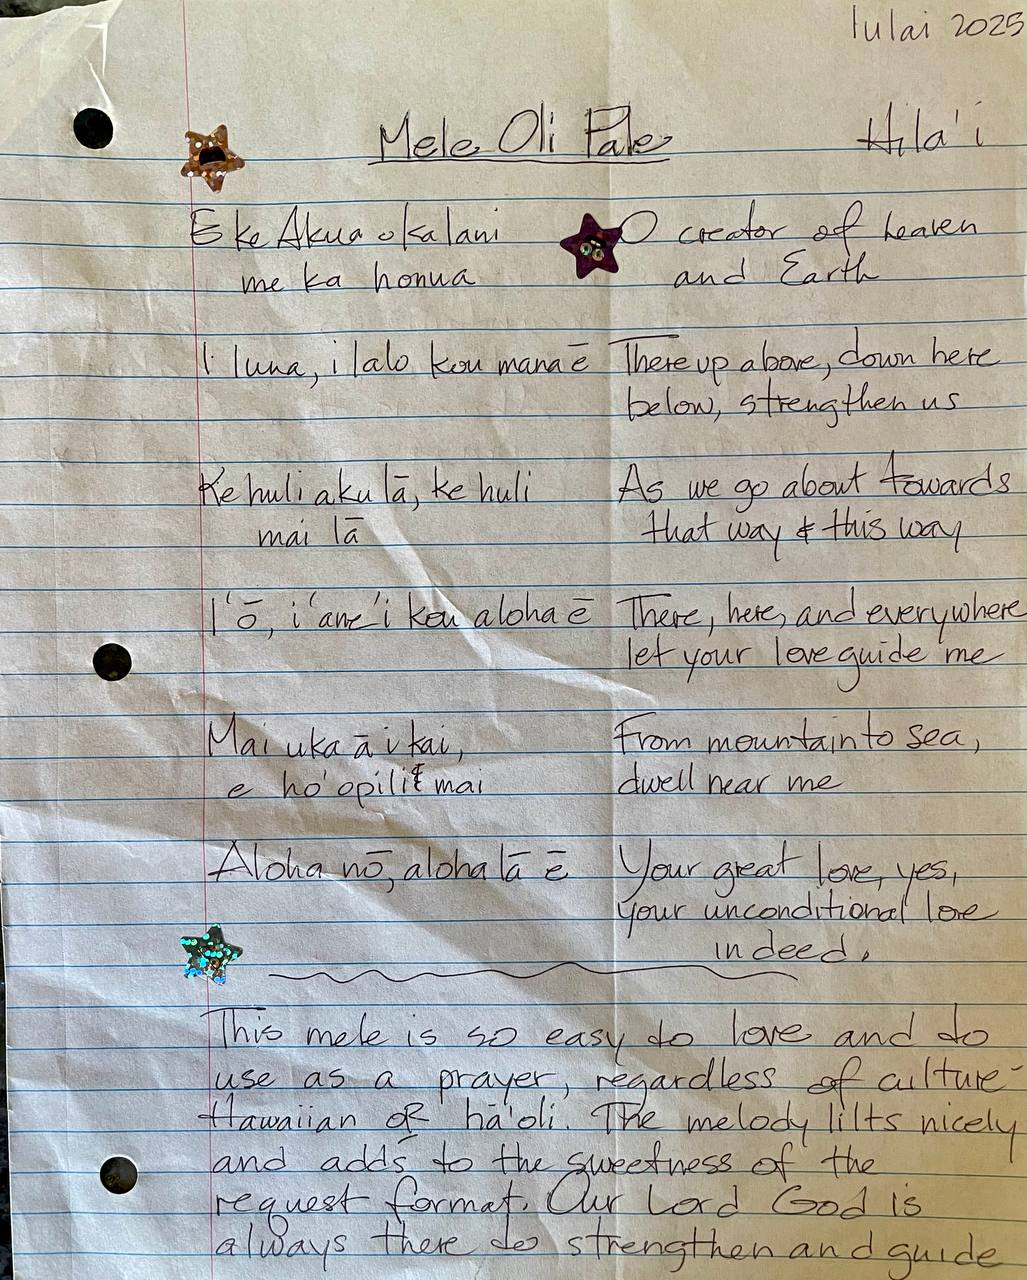 Iulai 2025
Mele Oli Pale
Hila'i
E ke Akua o ka lani
me ka honua
O creator of heaven
and Earth
I luna, i lalo kou mana ē
There up above, down here
below, strengthen us
Ke huli aku lā, ke huli
mai lā
As we go about towards
that way & this way
I 'ō, i 'ane'i kou aloha ē
There, here, and everywhere
let your love guide me
Mai uka ā i kai,
e ho'opili mai
From mountain to sea,
dwell near me
Aloha nō, aloha lā ē
Your great love, yes,
your unconditional love
indeed.
This mele is so easy to love and to
use as a prayer, regardless of culture-
Hawaiian OR hā'oli. The melody lilts nicely
and adds to the sweetness of the
request format. Our Lord God is
always there to strengthen and guide